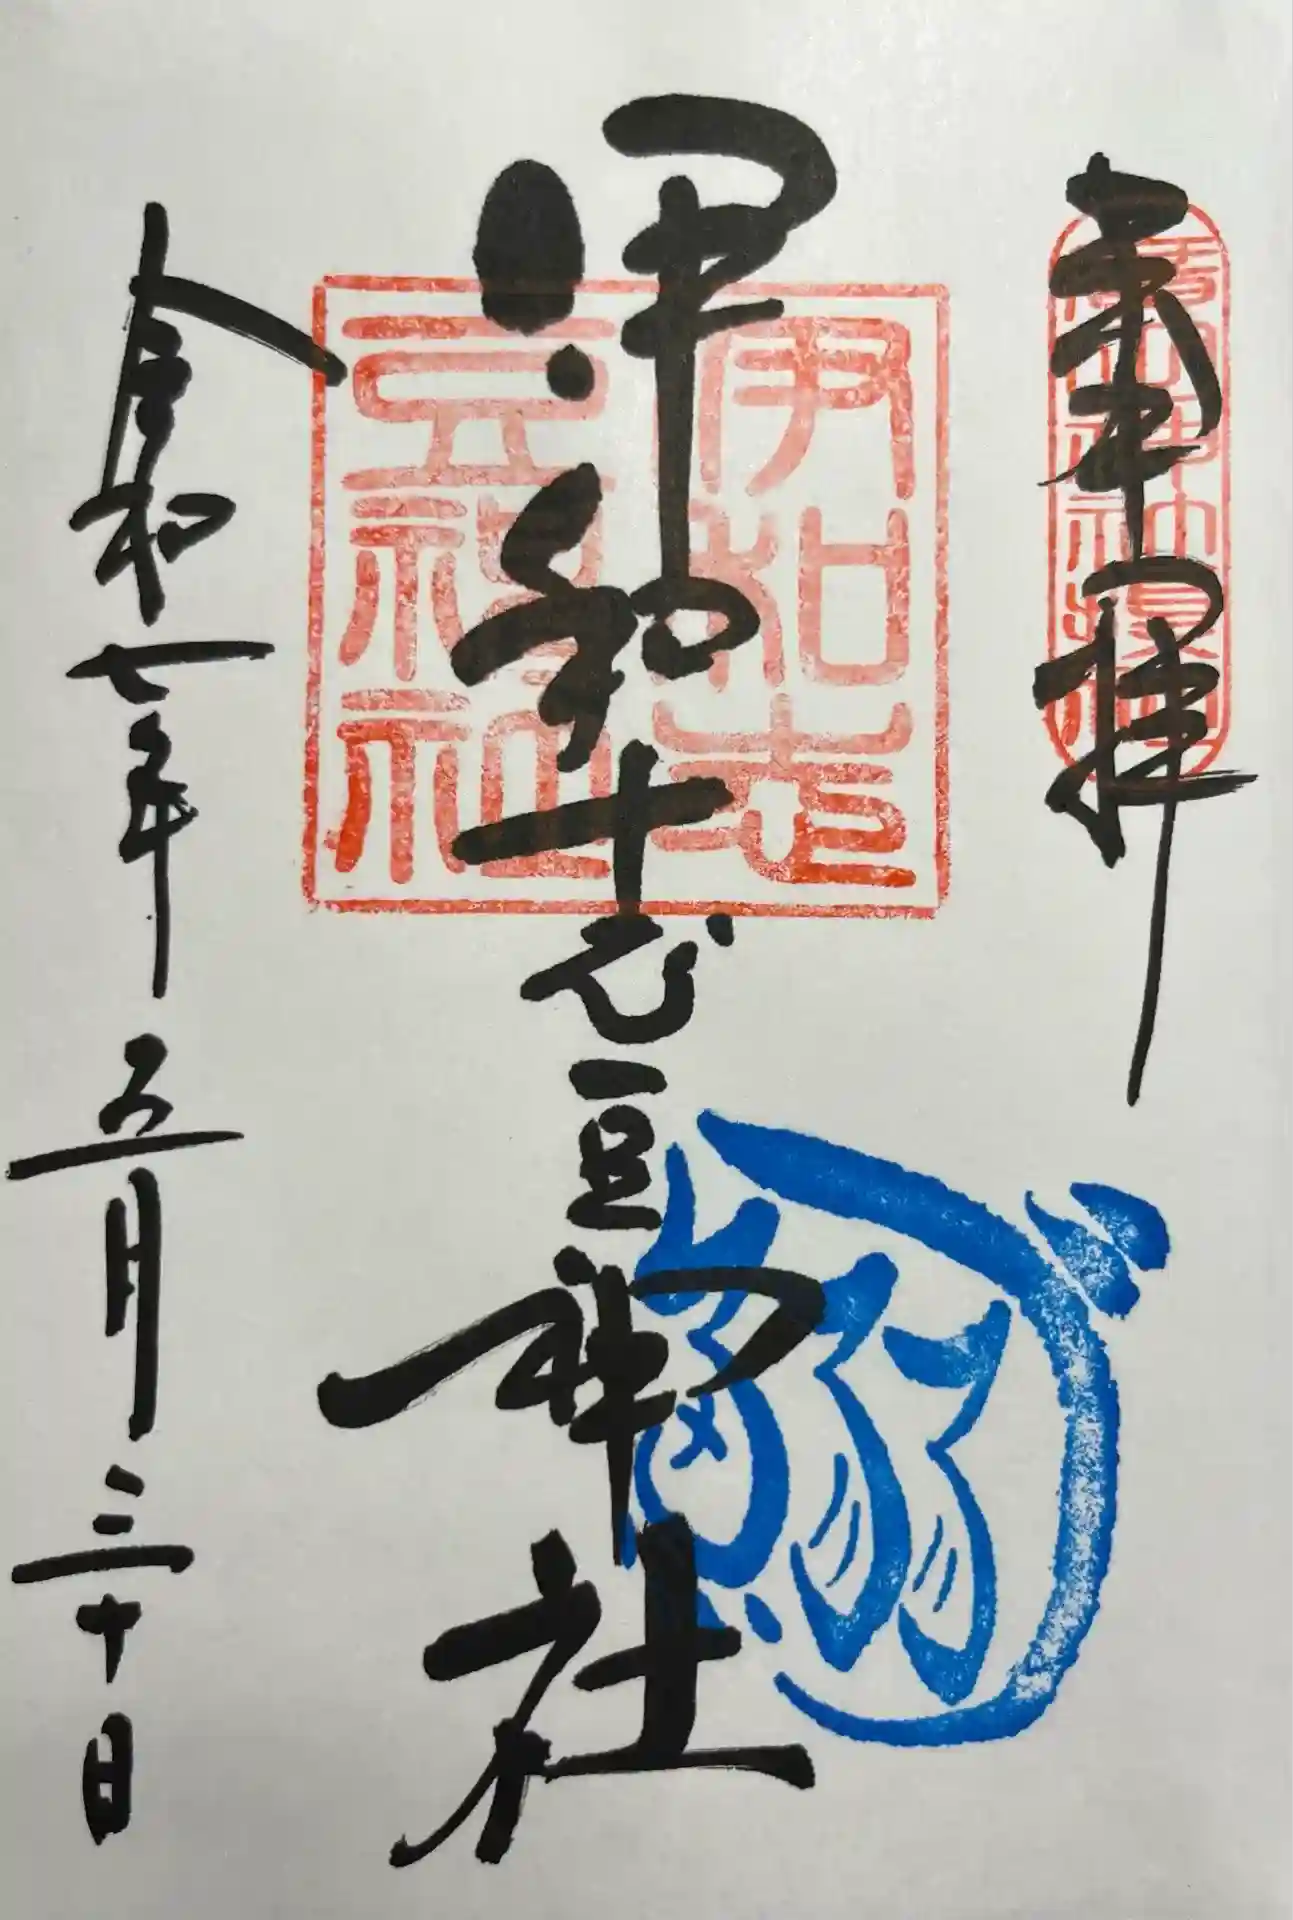 奉拝
伊和志豆神社
令和七年五月三十日
伊和志
豆神社
鰯
づ